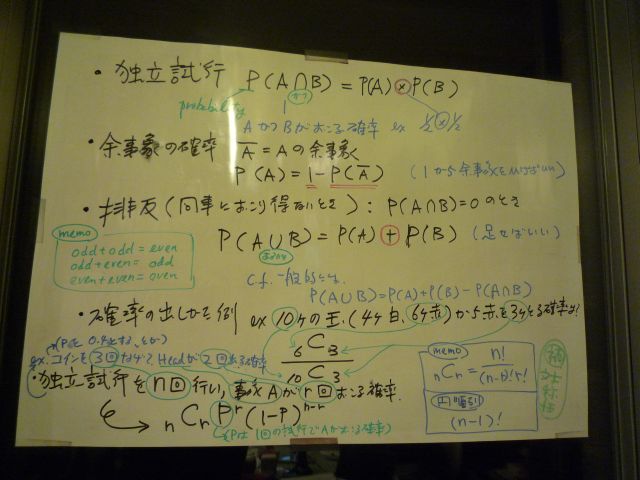 ・独立試行 P(A∩B) = P(A) × P(B)
かつ
probability
AかつBがおこる確率 ex 1/2 × 1/2
・余事象の確率 A̅ = Aの余事象
P(A) = 1 - P(A̅) (1から余事象をひけばいい)
・排反(同事におこり得ないとき): P(A∩B)=0のとき
P(A∪B) = P(A) + P(B) (足せばいい)
または
memo
odd + odd = even
odd + even = odd
even + even = even
c.f. 一般的には
P(A∪B) = P(A) + P(B) - P(A∩B)
・確率の出しかた例 ex 10ケの玉、(4ケ白、6ケ赤)から赤を3ケとる確率は?
6C3
10C3
(Pは 0.4とする、とか)
ex. コインを3回なげてHeadが2回出る確率
・独立試行をn回行い、事象Aがr回おこる確率.
nCr P^r (1-P)^n-r
(Pは1回の試行でAがおこる確率)
memo
nCr = n! / (n-r)! r!
円順列
(n-1)!